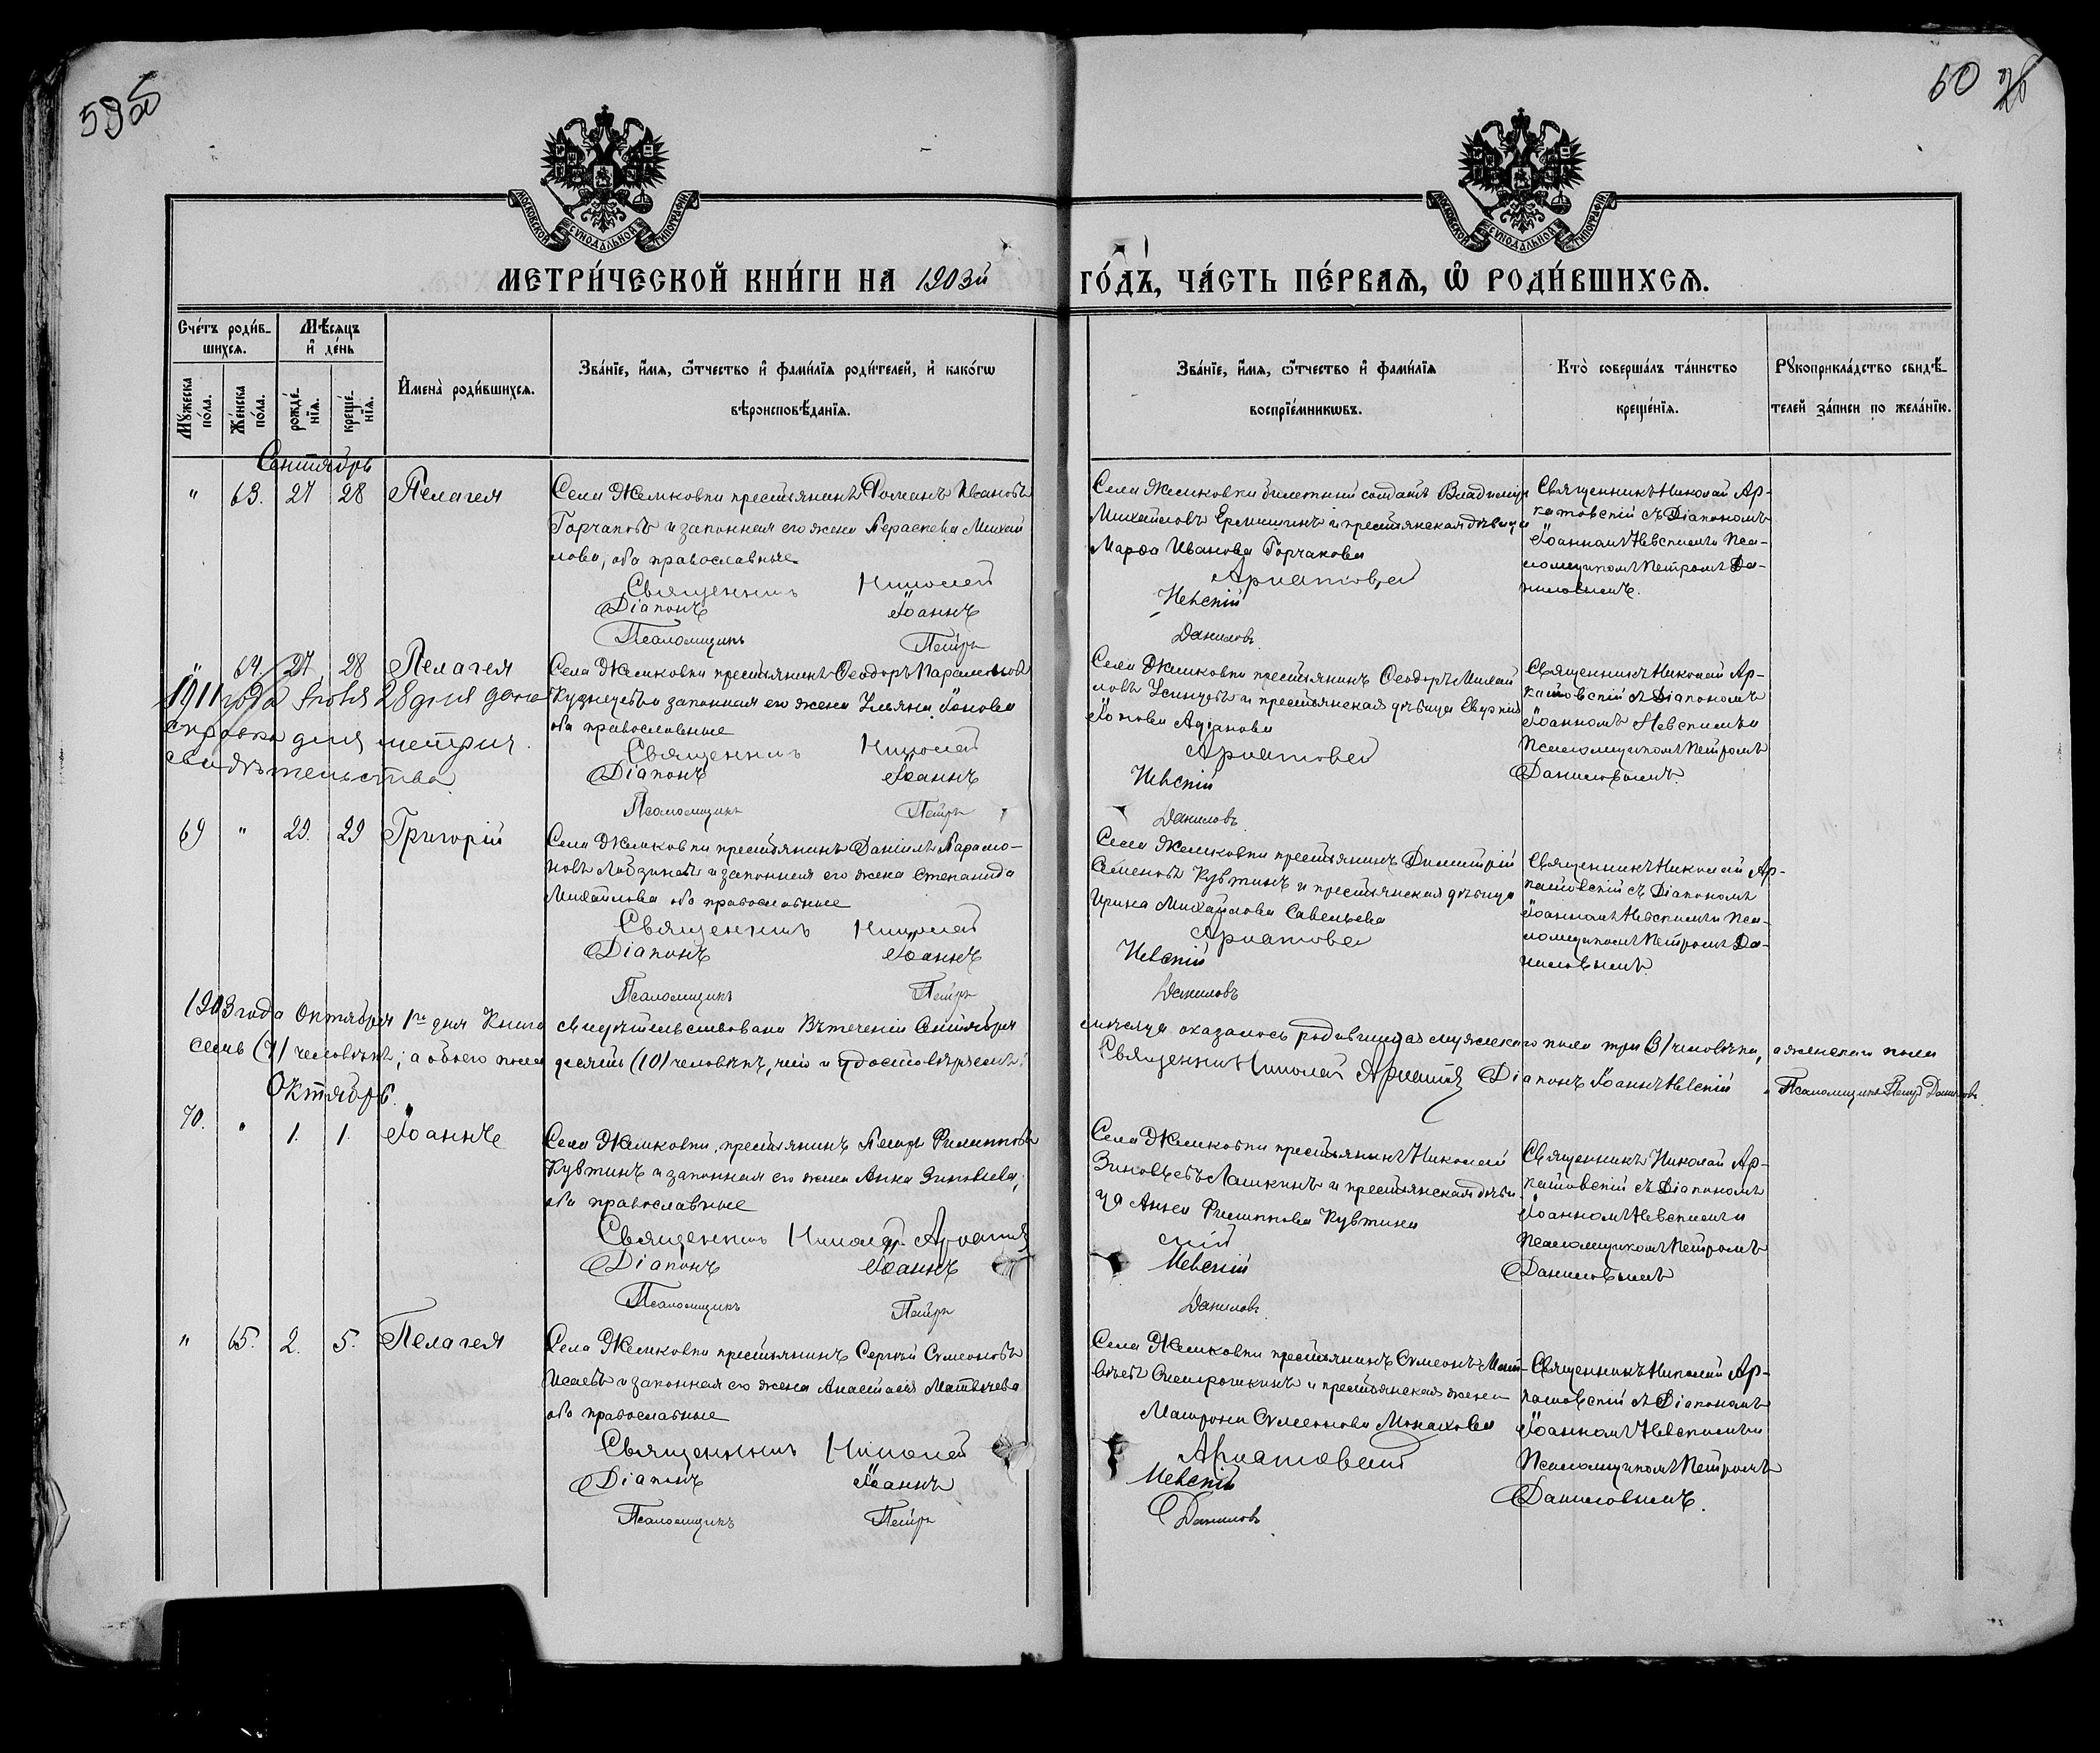 59об
60
МОСКОВСКОЙ СѴНОДАЛЬНОЙ ТИПОГРАФІИ
МОСКОВСКОЙ СѴНОДАЛЬНОЙ ТИПОГРАФІИ
МЕТРИ́ЧЕСКОЙ КНИ́ГИ НА 1903й ГО́ДЪ, ЧА́СТЬ ПЕ́РВАѦ, Ѡ҆ РОДИ́ВШИХСѦ.
Сче́тъ роди́в-
шихсѧ.
Мѣ́сяцъ
и҆ де́нь
Мꙋ́жеска по́ла.
Же́нска по́ла.
рожде́-
нїѧ.
креще́-
нїѧ.
И҆мена̀ роди́вшихсѧ.
Зва́нїе, и҆́мѧ, ѻ҆́тчество и҆ фами́лїѧ роди́телей, и҆ како́гѡ
вѣроисповѣ́данїѧ.
Зва́нїе, и҆́мѧ, ѻ҆́тчество и҆ фами́лїѧ
воспрїе́мникѡвъ.
Кто̀ соверша́лъ та́инство
креще́нїѧ.
Рꙋкоприкла́дство свидѣ́-
телей за́писи по жела́нїю.
Сентябрь
" 63. 27 28 Пелагея
Села Жемковки крестьянинъ Романъ Ивановъ
Горчаковъ и законная его жена Параскева Михай
лова, оба православные
Священникъ Николай
Діаконъ Іоаннъ
Псаломщикъ Петръ
Села Жемковки билетный солдатъ Владимиръ
Михайловъ Еремшинъ и крестьянская дѣвица
Марѳа Иванова Горчакова
Арнатовскій
Невскій
Даниловъ
Священникъ Николай Ар-
натовскій съ Діакономъ
Іоанномъ Невскимъ и Пса-
ломщикомъ Петромъ Да-
ниловымъ.
" 64 27 28 Пелагея
Села Жемковки крестьянинъ Ѳеодоръ Парамоновъ
Кузнецовъ и законная его жена Ульяна Іонова
оба православные
Священникъ Николай
Діаконъ Іоаннъ
Псаломщикъ Петръ
1911 года Іюня 28 дня дана
справка для метрич.
свидѣтельства
Села Жемковки крестьянинъ Ѳеодоръ Михай
ловъ и крестьянская дѣвица
Іонова
Арнатовскій
Невскій
Даниловъ
Священникъ Николай Ар-
натовскій съ Діакономъ
Іоанномъ Невскимъ и
Псаломщикомъ Петромъ
Даниловымъ.
69 " 29. 29 Григорій
Села Жемковки крестьянинъ Даніилъ Парамо-
новъ и законная его жена Степанида
Михайлова оба православные
Священникъ Николай
Діаконъ Іоаннъ
Псаломщикъ Петръ
Села Жемковки крестьянинъ Димитрій
Семеновъ Кувтинъ и крестьянская дѣвица
Ирина Михайлова Савельева
Арнатовскій
Невскій
Даниловъ
Священникъ Николай Ар-
натовскій съ Діакономъ
Іоанномъ Невскимъ и Пса-
ломщикомъ Петромъ Да-
ниловымъ.
1903 года Октября 1го дня Книга свидѣтельствована Въ теченіи Сентября мѣсяца оказалось родившихся мужескаго пола три (3) человѣка, а женскаго пола
семь (7) человѣкъ; а обоего пола десять (10) человѣкъ, что и удостовѣряемъ: Священникъ Николай Арнатов Діаконъ Іоаннъ Невскій Псаломщикъ Петръ Даниловъ
Октябрь.
70. " 1. 1. Іоаннъ
Села Жемковки, крестьянинъ Петръ Филипповъ
Кувтинъ и законная его жена Анна Зиновьева,
оба православные
Священникъ Николай Арнатов
Діаконъ Іоаннъ
Псаломщикъ Петръ
Села Жемковки крестьянинъ Николай
Зиновьевъ Лашкинъ и крестьянская дѣви
ца Анна Филиппова Кувтина
скій
Невскій
Даниловъ
Священникъ Николай Ар-
натовскій съ Діакономъ
Іоанномъ Невскимъ и
Псаломщикомъ Петромъ
Даниловымъ
" 65. 2. 5. Пелагея
Села Жемковки крестьянинъ Сергѣй Симеоновъ
Исаевъ и законная его жена Анастасія Матвѣева
оба православные
Священникъ Николай
Діаконъ Іоаннъ
Псаломщикъ Петръ
Села Жемковки крестьянинъ Симеонъ Мат-
вѣевъ и крестьянская жена
Матрона Симеонова Монахова
Арнатовскій
Невскій
Даниловъ
Священникъ Николай Ар-
натовскій съ Діакономъ
Іоанномъ Невскимъ и
Псаломщикомъ Петромъ
Даниловымъ.